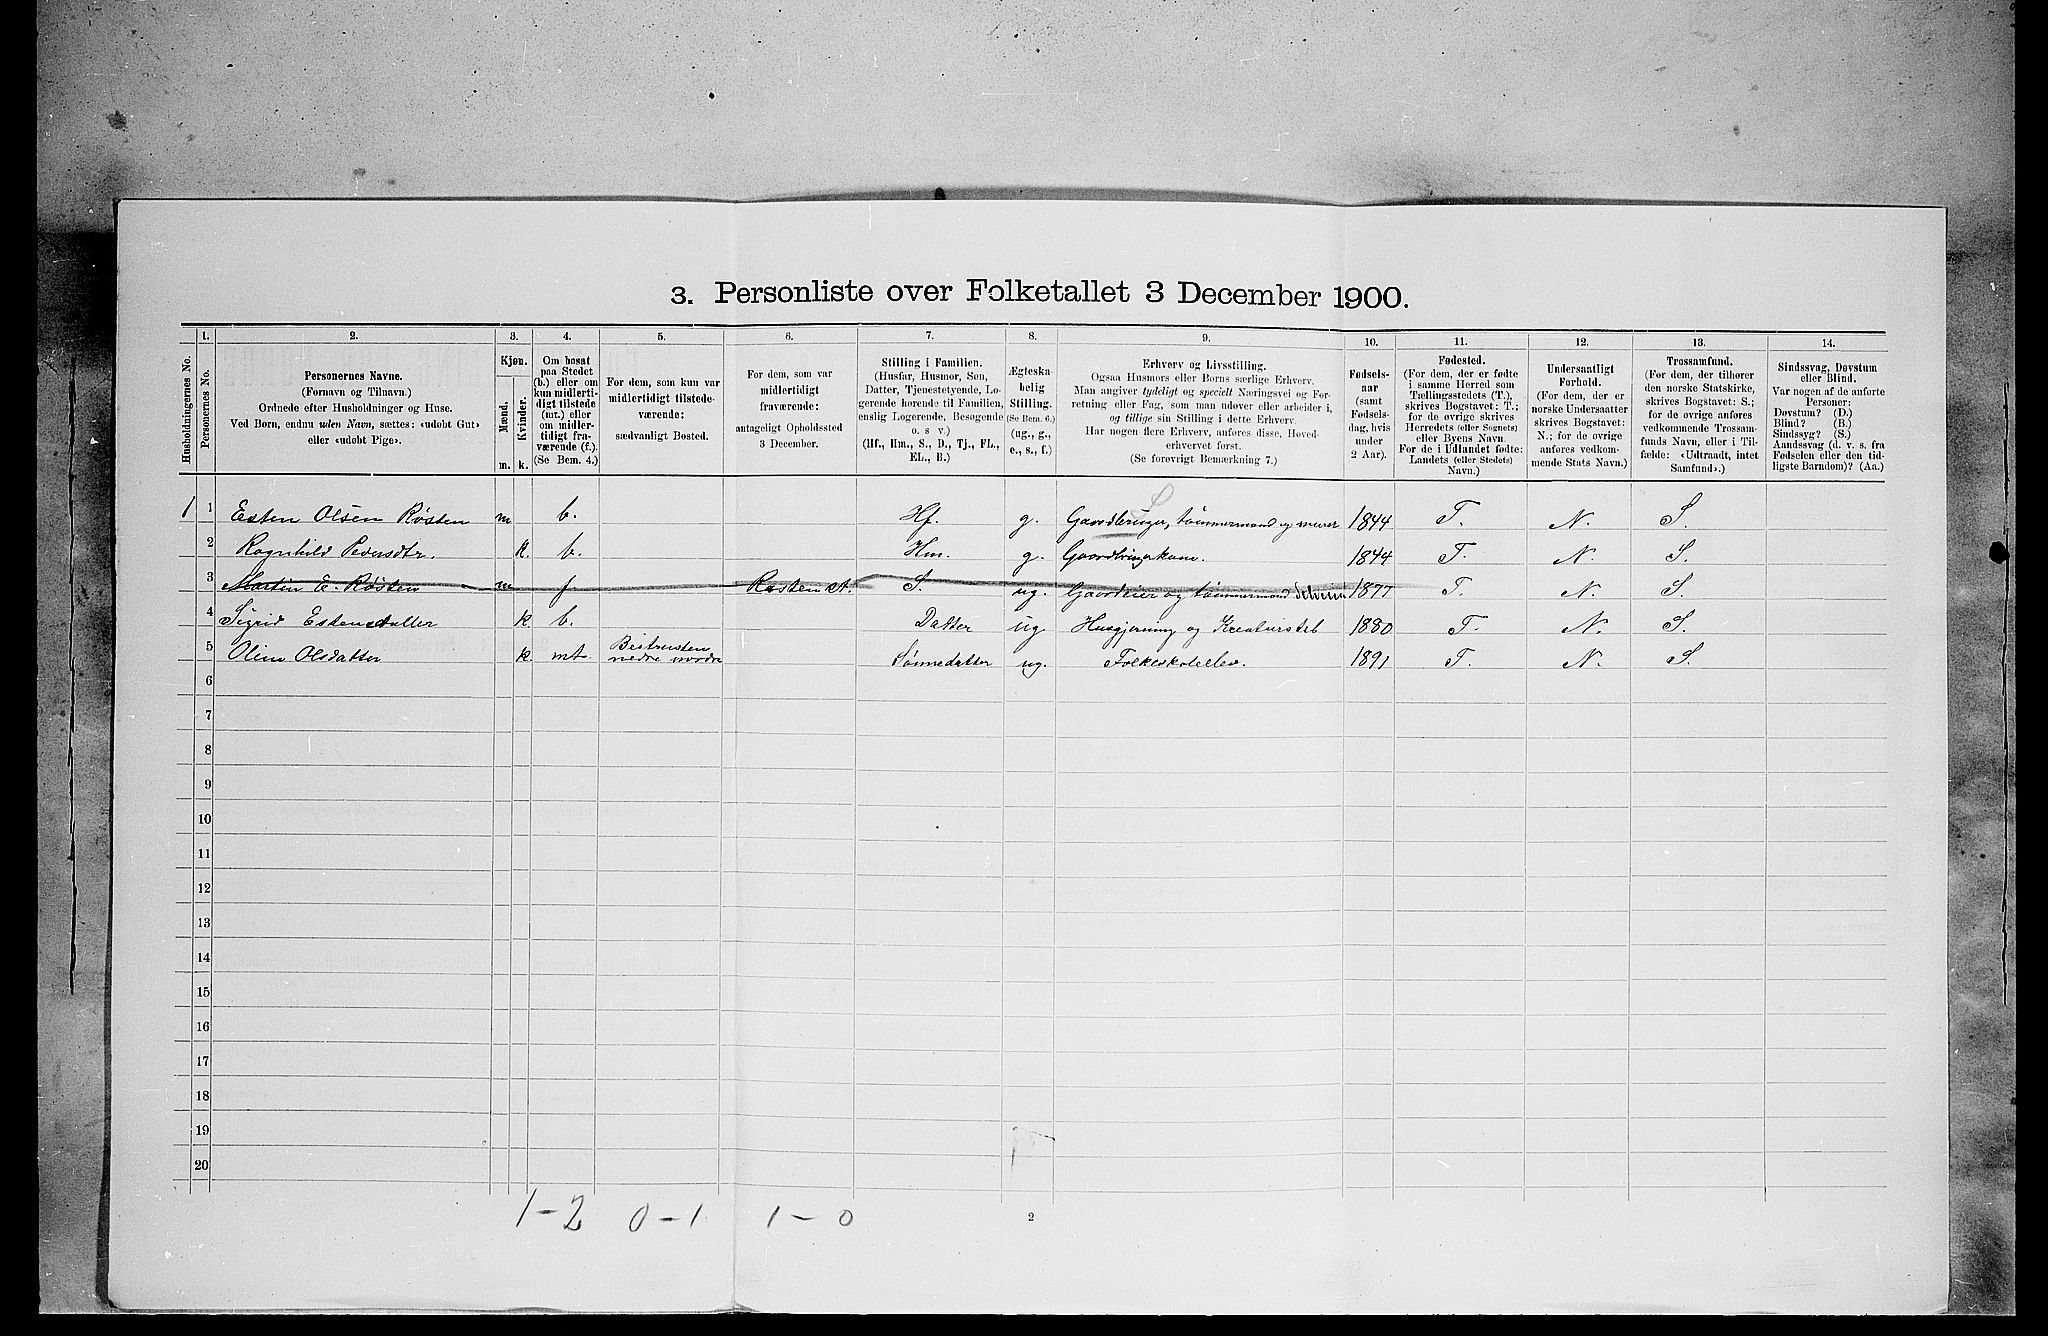 3. Personliste over Folketallet 3 December 1900.
1. 2. 3. 4. 5. 6. 7. 8. 9. 10. 11. 12. 13. 14.
Husholdningernes No.
Personernes No.
Personernes Navne.
(Fornavn og Tilnavn.)
Ordnede efter Husholdninger og Huse.
Ved Børn, endnu uden Navn, sættes: «udøbt Gut»
eller «udøbt Pige».
Kjøn.
Mænd.
Kvinder.
m. k.
Om bosat
paa Stedet
(b.) eller om
kun midlerti-
digt tilstede
(mt.) eller
om midler-
tidigt fra-
værende (f.).
(Se Bem. 4.)
For dem, som kun var
midlertidigt tilstede-
værende:
sædvanligt Bosted.
For dem, som var
midlertidigt
fraværende:
antageligt Opholdssted
3 December.
Stilling i Familien.
(Husfar, Husmor, Søn,
Datter, Tjenestetyende, Lo-
gerende hørende til Familien,
enslig Logerende, Besøgende
o. s. v.)
(Hf., Hm., S., D., Tj., FL.,
EL., B.)
Ægteska-
belig
Stilling.
(Se Bem. 6.)
(ug., g.,
e., s., f.)
Erhverv og Livsstilling.
Ogsaa Husmors eller Børns særlige Erhverv.
Man angiver tydeligt og specielt Næringsvei og For-
retning eller Fag, som man udøver eller arbeider i,
og tillige sin Stilling i dette Erhverv.
Har nogen flere Erhverv, anføres disse, Hoved-
erhvervet først.
(Se forøvrigt Bemærkning 7.)
Fødsels-
aar
(samt
Fødsels-
dag, hvis
under
2 Aar).
Fødested.
(For dem, der er fødte
i samme Herred som
Tællingsstedets (T.),
skrives Bogstavet: T.;
for de øvrige skrives
Herredets (eller Sognets)
eller Byens Navn.
For de i Udlandet fødte:
Landets (eller Stedets)
Navn.)
Undersaatligt
Forhold.
(For dem, der er
norske Undersaatter
skrives Bogstavet:
N.; for de øvrige
anføres vedkom-
mende Stats Navn.)
Trossamfund.
(For dem, der tilhører
den norske Statskirke,
skrives Bogstavet: S.;
for de øvrige anføres
vedkommende Trossam-
funds Navn, eller i Til-
fælde: «Udtraadt, intet
Samfund».)
Sindssvag, Døvstum
eller Blind.
Var nogen af de anførte
Personer:
Døvstum? (D.)
Blind? (B.)
Sindssyg? (S.)
Aandssvag (d. v. s. fra
Fødselen eller den tid-
ligste Barndom)? (Aa.)
1 1 Esten Olsen Røsten m b. Hf. g. Gaardbruger, tømmermand og murer 1844 T. N. S.
S
2 Ragnhild Pedersdtr. k. b. Hm. g. Gaardbrugerkone. 1844 T. N. S.
3 Martin E. Røsten m f Røsten A. S. ug. Gaardeier og tømmermand Selveier 1877 T. N. S.
4 Sigrid Estensdatter k b. Datter ug Husgjerning og Kreaturstel 1880 T. N. S.
5 Oline Olsdatter k. mt. nedre nordre Sønnedatter ug. Folkeskoleelev. 1891 T. N. S.
6
7
8
9
10
11
12
13
14
15
16
17
18
19
20
1-2 0-1 1-0
2